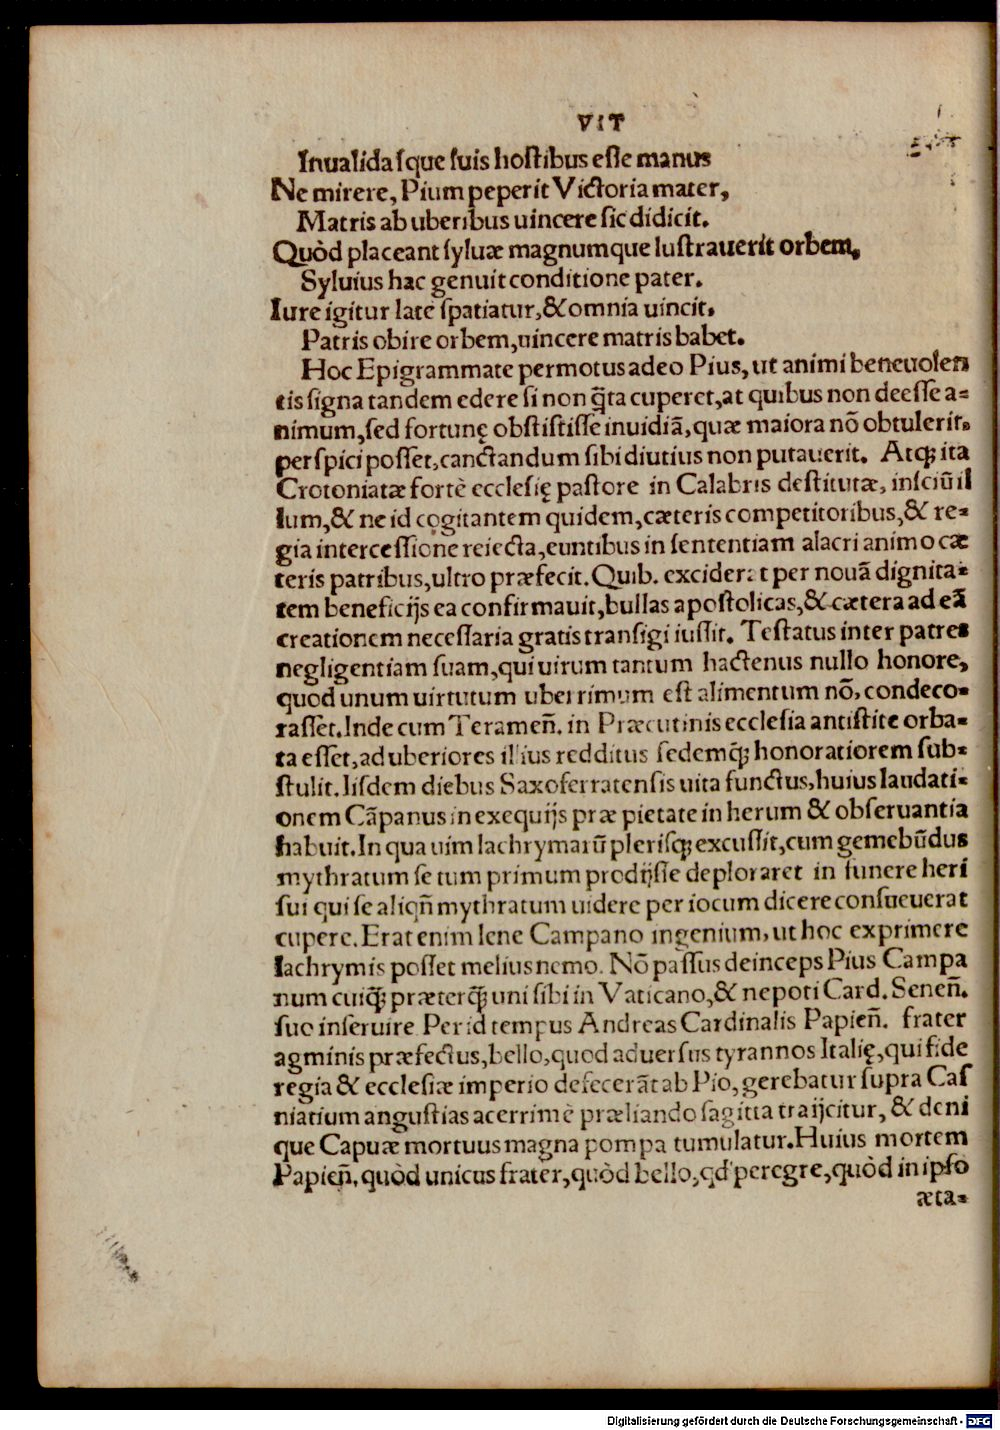 VIT
Inualidasque suis hostibus esse manus
Ne mirere, Pium peperit Victoria mater,
Matris ab uberibus uincere sic didicit.
Quòd placeant syluæ magnumque lustrauerit orbem,
Syluius hac genuit conditione pater.
Iure igitur late spatiatur, & omnia uincit,
Patris obire orbem, uincere matris babet.
Hoc Epigrammate permotus adeo Pius, ut animi beneuolen
tis signa tandem edere si non q̃ta cuperet, at quibus non deesse a-
nimum, sed fortunę obstitisse inuidiã, quæ maiora nõ obtulerit,
perspici posset, canctandum sibi diutius non putauerit. Atq; ita
Crotoniatæ fortè ecclesię pastore in Calabris destitutæ, insciũ il
lum, & ne id cogitantem quidem, cæteris competitoribus, & re-
gia intercessione reiecta, euntibus in sententiam alacri animo cæ
teris patribus, ultro præfecit. Quib. exciderat per nouã dignita-
tem beneficijs ea confirmauit, bullas apostolicas, & cætera ad eã
creationem necessaria gratis transigi iussit. Testatus inter patres
negligentiam suam, qui uirum tantum hactenus nullo honore,
quod unum uirtutum uberrimum est alimentum nõ, condeco-
rasset. Inde cum Teramen̄. in Præcutinis ecclesia antistite orba-
ta esset, ad uberiores illius redditus sedemq̃; honoratiorem sub-
stulit. Iisdem diebus Saxoferratensis uita functus, huius laudati-
onem Cãpanus in exequijs præ pietate in herum & obseruantia
habuit. In qua uim lachrymarũ plerisq; excussit, cum gemebũdus
mythratum se tum primum prodijsse deploraret in funere heri
sui qui se aliqn̄ mythratum uidere per iocum dicere consueuerat
cupere. Erat enim lene Campano ingenium, ut hoc exprimere
lachrymis posset melius nemo. Nõ passus deinceps Pius Campa
num cuiq̃; præterq̃; uni sibi in Vaticano, & nepoti Card. Senen̄.
suo inseruire Per id tempus Andreas Cardinalis Papien̄. frater
agminis præfectus, bello, quod aduersus tyrannos Italię, qui fide
regia & ecclesiæ imperio defecerãt ab Pio, gerebatur supra Cas
niatium angustias acerrimè præliando sagitta traijcitur, & deni
que Capuæ mortuus magna pompa tumulatur. Huius mortem
Papien̄. quòd unicus frater, quòd bello, qd' peregre, quòd in ipso
æta-
Digitalisierung gefördert durch die Deutsche Forschungsgemeinschaft - DFG